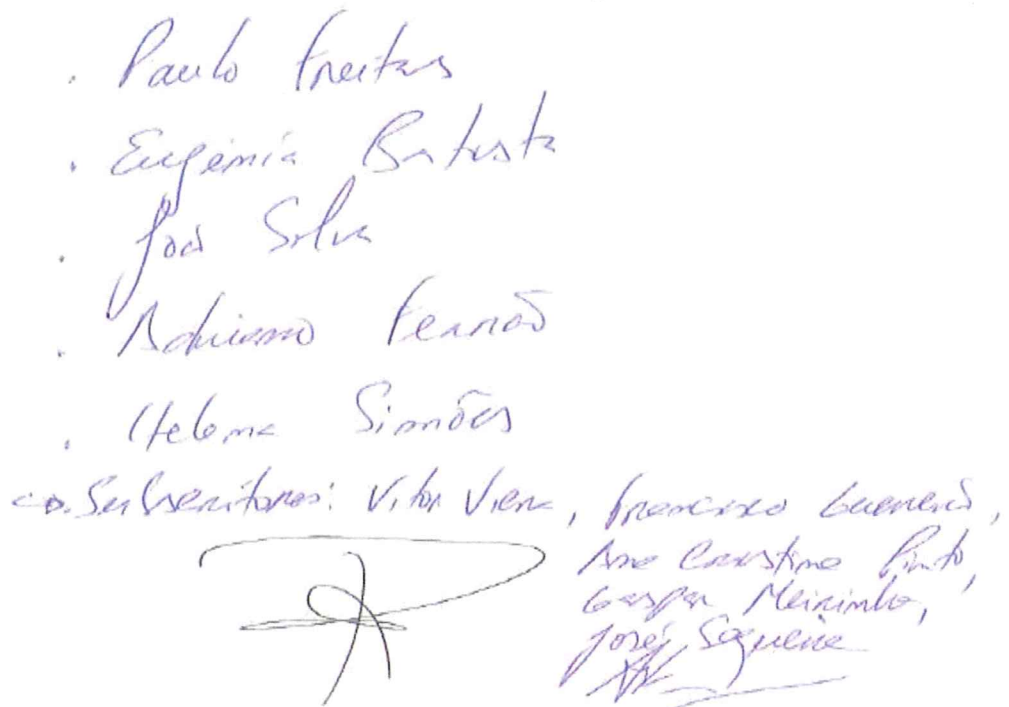 . Paulo Freitas
. Eugénia Batista
. João Silva
. Adriano Fernão
. Helena Simões
Subscritores: Vitor Vieira, Francisco Guerreiro,
Ana Cristina Pinto,
Gaspar Meirinho,
José Sequeira